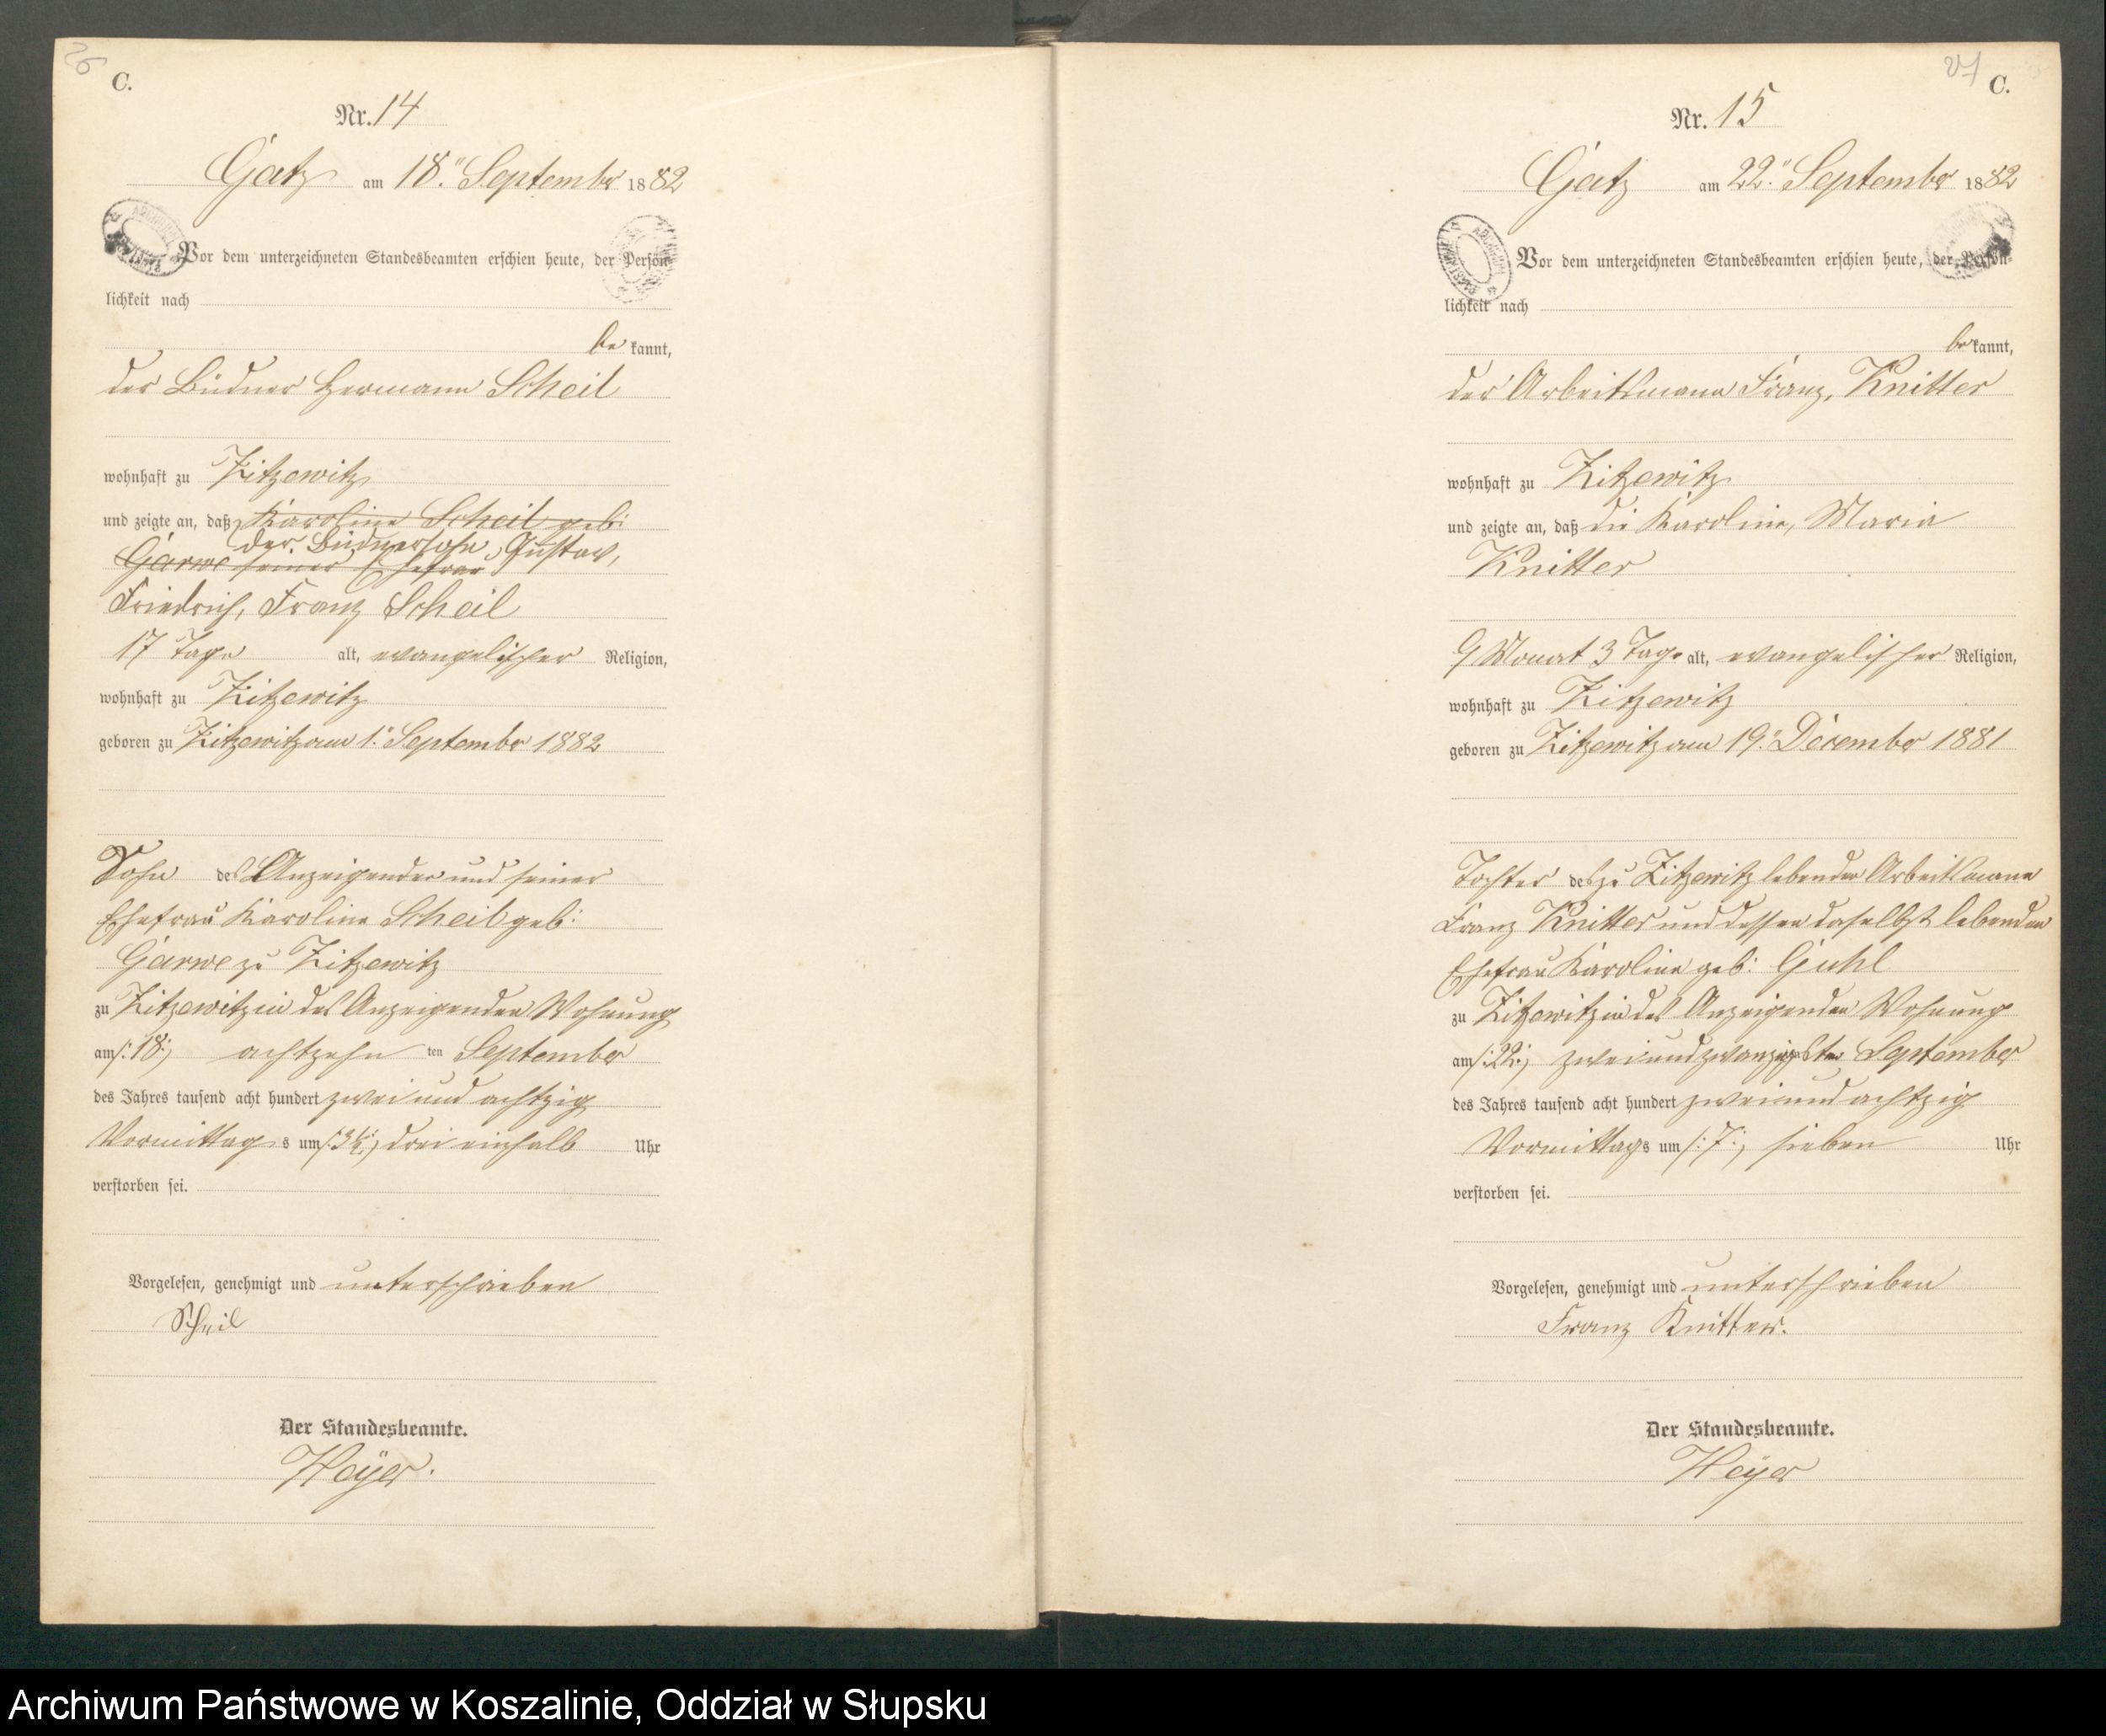 26
C.
Nr. 14
Gatz am 18.ᵗᵉⁿ September 1882
Vor dem unterzeichneten Standesbeamten erschien heute, der Persön-
lichkeit nach
be kannt,
der Büdner Hermann Scheil
wohnhaft zu Zitzewitz
und zeigte an, daß Karoline Scheil geb:
der Büdnersohn Gustav,
Garwe seiner Ehefrau
Friedrich, Franz Scheil
17 Tage alt, evangelischer Religion,
wohnhaft zu Zitzewitz
geboren zu Zitzewitz am 1. September 1882
Sohn des Anzeigenden und seiner
Ehefrau Karoline Scheil geb:
Garwe zu Zitzewitz
zu Zitzewitz in des Anzeigenden Wohnung
am /:18:/ achtzehn ten September
des Jahres tausend acht hundert zwei und achtzig
Vormittag s um /:3½:/ drei einhalb Uhr
verstorben sei.
Vorgelesen, genehmigt und unterschrieben
Scheil
Der Standesbeamte.
Heÿer.
27
C.
Nr. 15
Gatz am 22. September 1882
Vor dem unterzeichneten Standesbeamten erschien heute, der Persön-
lichkeit nach
be kannt,
der Arbeitsmann Franz, Knitter
wohnhaft zu Zitzewitz
und zeigte an, daß die Karoline, Maria
Knitter
9 Monat 3 Tage alt, evangelischer Religion,
wohnhaft zu Zitzewitz
geboren zu Zitzewitz am 19. December 1881
Tochter des zu Zitzewitz lebenden Arbeitsmann
Franz Knitter und dessen daselbst lebenden
Ehefrau Karoline geb: Guhl
zu Zitzewitz in des Anzeigenden Wohnung
am /:22:/ zwei und zwanzigsten September
des Jahres tausend acht hundert zwei und achtzig
Vormittags um /:7:/ sieben Uhr
verstorben sei.
Vorgelesen, genehmigt und unterschrieben
Franz Knitter.
Der Standesbeamte.
Heÿer
Archiwum Państwowe w Koszalinie, Oddział w Słupsku